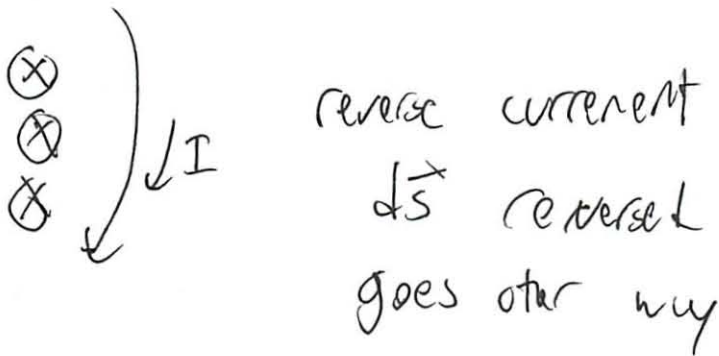 ⊗
⊗
⊗
I
reverse currenent
ds⃗ reversed
goes other way